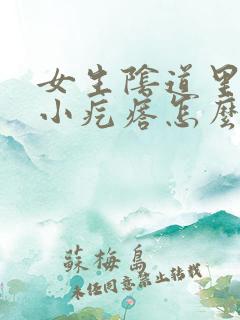 女生陰道里
小疙瘩怎麼
蘇梅島
未任同意禁止轉載